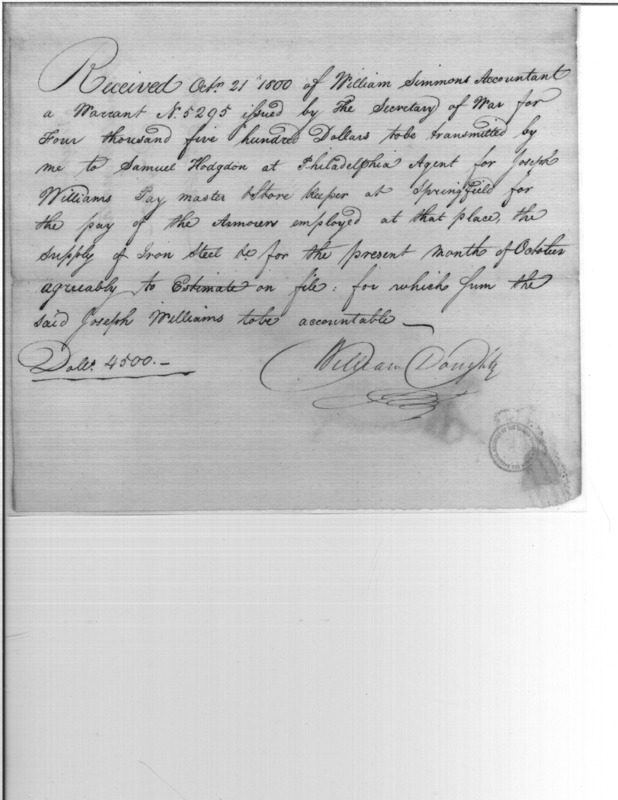 Received Octr. 21st 1800 of William Simmons Accountant
a Warrant No. 5295 issued by the Secretary of War for
Four thousand five hundred Dollars to be transmitted by
me to Samuel Hodgdon at Philadelphia Agent for Joseph
Williams Pay master & Store keeper at Springfield for
the pay of the Armorers employed at that place, the
supply of Iron Steel &c for the present month of October
agreeably to Estimate on file: for which sum the
said Joseph Williams to be accountable —
Dolls. 4500.—
William Doughty